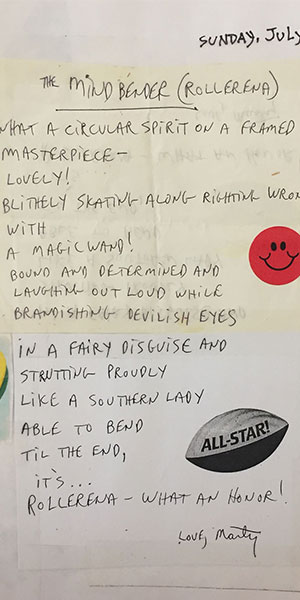 SUNDAY, JULY
THE MIND BENDER (ROLLERENA)
WHAT A CIRCULAR SPIRIT ON A FRAMED
MASTERPIECE-
LOVELY!
BLITHELY SKATING ALONG RIGHTING WRON
WITH
A MAGIC WAND!
BOUND AND DETERMINED AND
LAUGHING OUT LOUD WHILE
BRANDISHING DEVILISH EYES
IN A FAIRY DISGUISE AND
STRUTTING PROUDLY
LIKE A SOUTHERN LADY
ABLE TO BEND
TIL THE END,
IT'S...
ROLLERENA - WHAT AN HONOR!
ALL-STAR!
LOVE, Marty